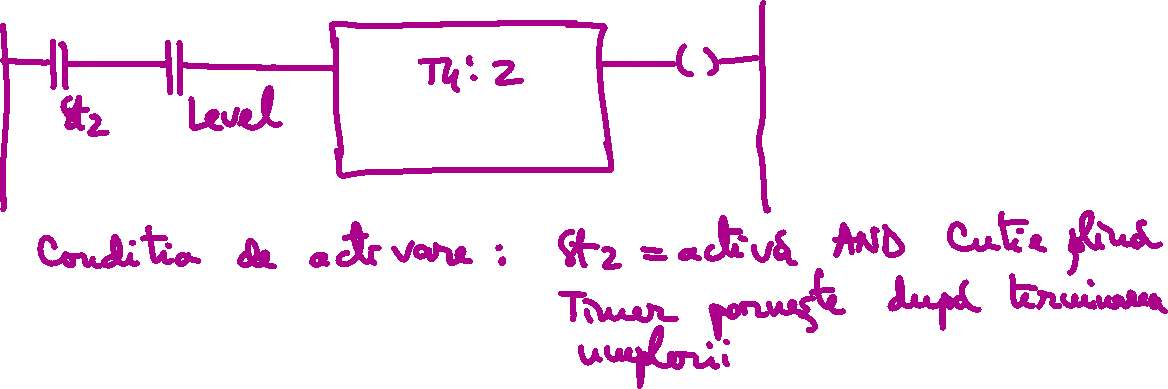 T4: 2
St2 Level
Conditia de activare: St2 = activă AND Cutie plină
Timer pornește după terminarea
umplerii